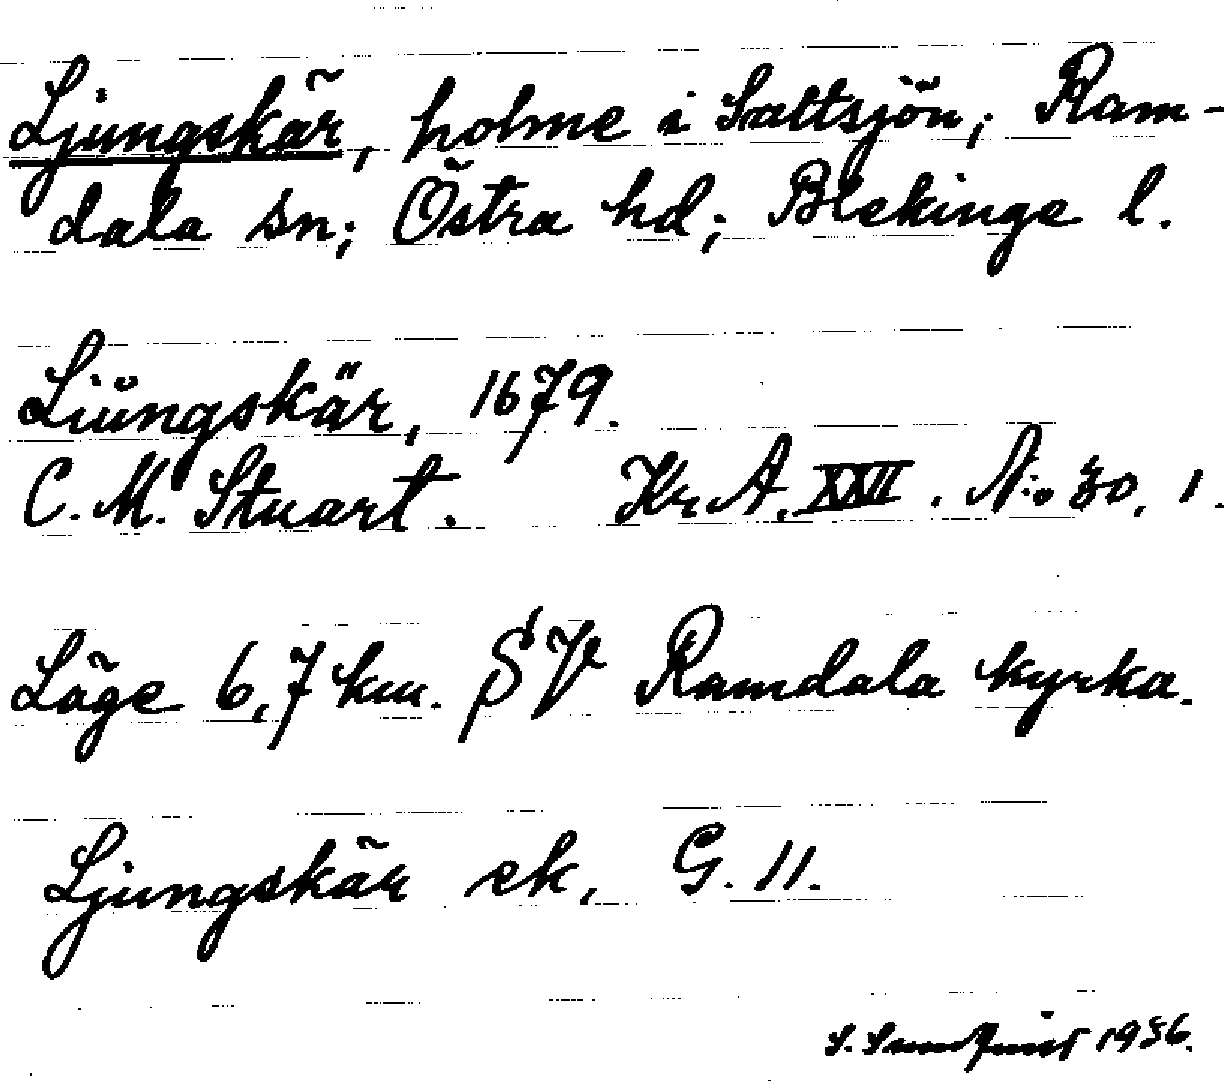 Ljungskär, holme i Saltsjön; Ram-
dala sn; Östra hd; Blekinge l.
Liŭngskär, 1679.
C. M. Stuart. Kr. A. XXII. No 30. 1.
Läge 6,7 km. SV Ramdala kyrka.
Ljungskär ek. G. 11.
S. Sundquist 1936.